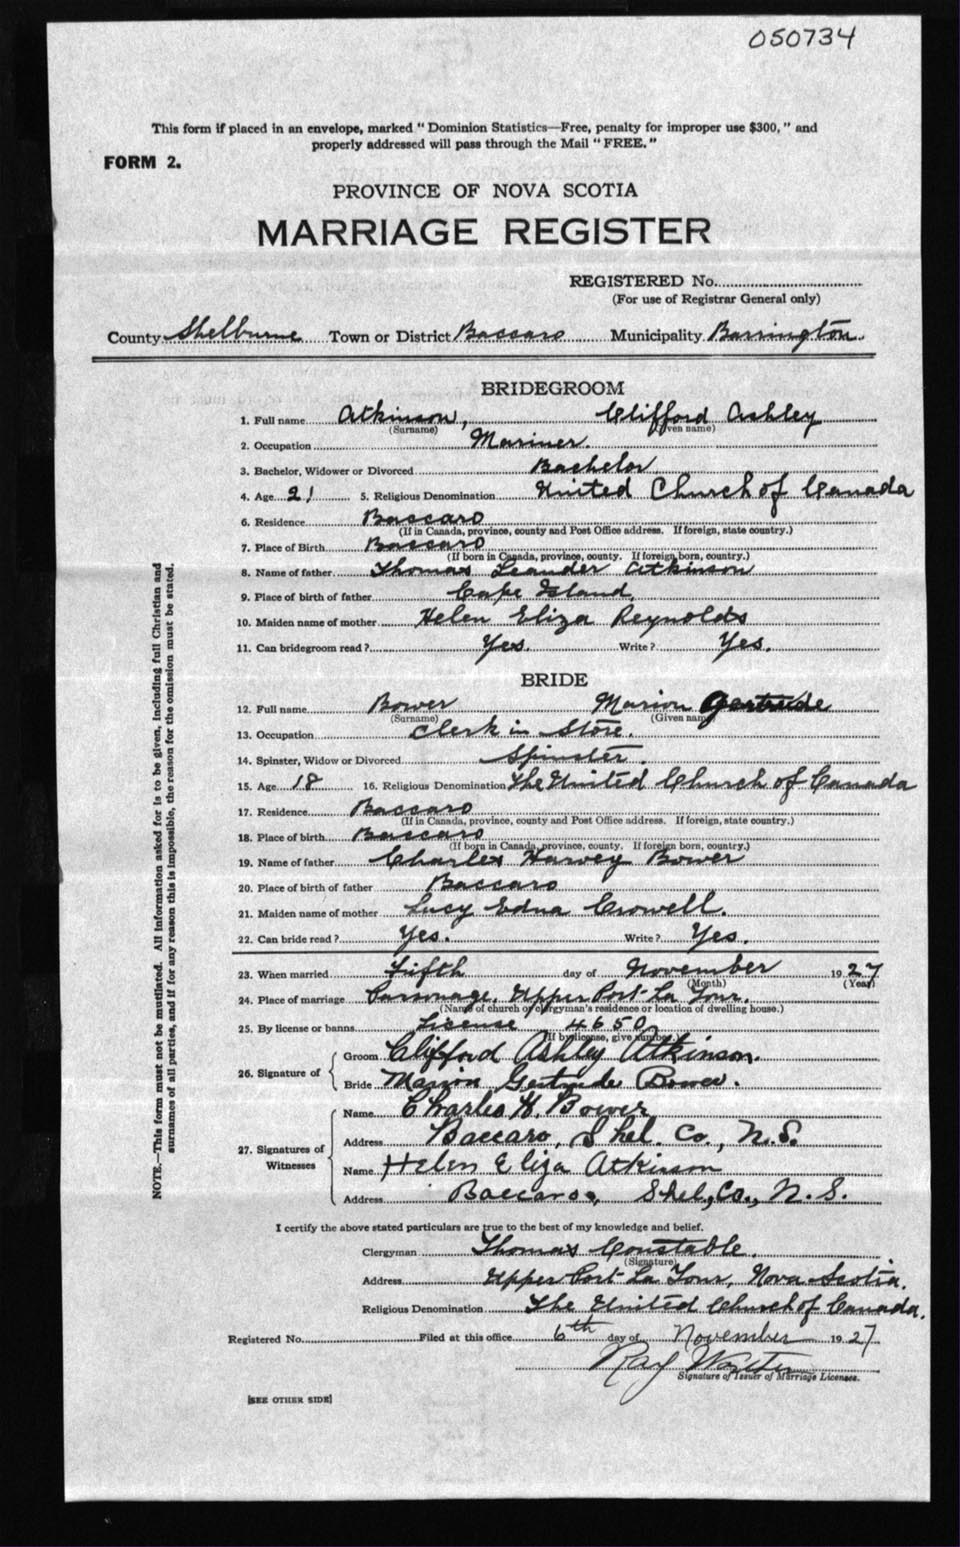 050734
This form if placed in an envelope, marked "Dominion Statistics—Free, penalty for improper use $300," and
properly addressed will pass through the Mail "FREE."
FORM 2.
PROVINCE OF NOVA SCOTIA
MARRIAGE REGISTER
REGISTERED No.
(For use of Registrar General only)
County Shelburne Town or District Baccaro Municipality Barrington
BRIDEGROOM
1. Full name Atkinson, Clifford Ashley
(Surname) (Given name)
2. Occupation Mariner.
3. Bachelor, Widower or Divorced Bachelor
4. Age 21 5. Religious Denomination United Church of Canada
6. Residence Baccaro
(If in Canada, province, county and Post Office address. If foreign, state country.)
7. Place of Birth Baccaro
(If born in Canada, province, county. If foreign born, country.)
8. Name of father Thomas Leander Atkinson
9. Place of birth of father Cape Island,
10. Maiden name of mother Helen Eliza Reynolds
11. Can bridegroom read? Yes. Write? Yes.
BRIDE
12. Full name Bower Marion Gertrude
(Surname) (Given name)
13. Occupation Clerk in Store.
14. Spinster, Widow or Divorced Spinster.
15. Age 18 16. Religious Denomination The United Church of Canada
17. Residence Baccaro
(If in Canada, province, county and Post Office address. If foreign, state country.)
18. Place of birth Baccaro
(If born in Canada, province, county. If foreign born, country.)
19. Name of father Charles Harvey Bower
20. Place of birth of father Baccaro
21. Maiden name of mother Lucy Edna Crowell.
22. Can bride read? Yes. Write? Yes.
23. When married Fifth day of November 1927
(Month) (Year)
24. Place of marriage Parsonage, Upper Port La Tour.
(Name of church or clergyman's residence or location of dwelling house.)
25. By license or banns License 4650
(If by license, give number.)
26. Signature of
Groom Clifford Ashley Atkinson.
Bride Marion Gertrude Bower.
27. Signatures of Witnesses
Name Charles H. Bower
Address Baccaro, Shel. Co., N.S.
Name Helen Eliza Atkinson
Address Baccaro, Shel, Co., N.S.
I certify the above stated particulars are true to the best of my knowledge and belief.
Clergyman Thomas Constable.
(Signature)
Address Upper Port La Tour, Nova Scotia.
Religious Denomination The United Church of Canada.
Registered No. Filed at this office 6th day of November 1927
Ray
Signature of Issuer of Marriage Licenses.
[SEE OTHER SIDE]
NOTE.—This form must not be mutilated. All information asked for is to be given, including full Christian and
surnames of all parties, and if for any reason this is impossible, the reason for the omission must be stated.